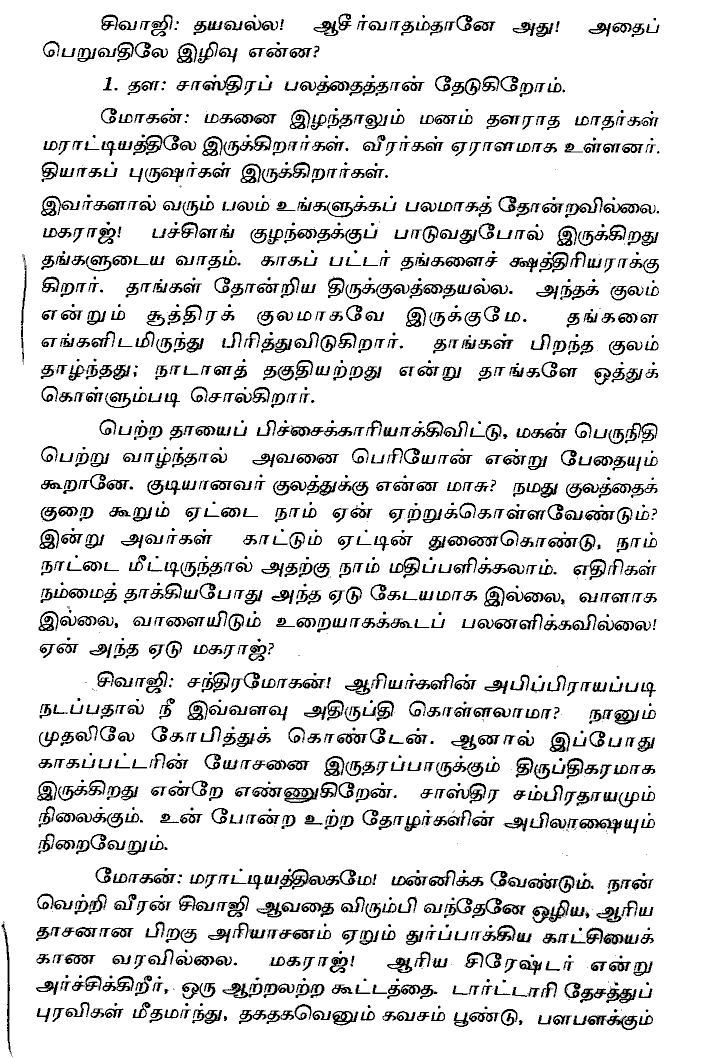 சிவாஜி: தயவல்ல! ஆசீர்வாதம்தானே அது! அதைப்
பெறுவதிலே இழிவு என்ன?
1. தள: சாஸ்திரப் பலத்தைத்தான் தேடுகிறோம்.
மோகன்: மகனை இழந்தாலும் மனம் தளராத மாதர்கள்
மராட்டியத்திலே இருக்கிறார்கள். வீரர்கள் ஏராளமாக உள்ளனர்.
தியாகப் புருஷர்கள் இருக்கிறார்கள்.
இவர்களால் வரும் பலம் உங்களுக்கப் பலமாகத் தோன்றவில்லை.
மகராஜ்! பச்சிளங் குழந்தைக்குப் பாடுவதுபோல் இருக்கிறது
தங்களுடைய வாதம். காகப் பட்டர் தங்களைச் க்ஷத்திரியராக்கு
கிறார். தாங்கள் தோன்றிய திருக்குலத்தையல்ல. அந்தக் குலம்
என்றும் சூத்திரக் குலமாகவே இருக்குமே. தங்களை
எங்களிடமிருந்து பிரித்துவிடுகிறார். தாங்கள் பிறந்த குலம்
தாழ்ந்தது; நாடாளத் தகுதியற்றது என்று தாங்களே ஒத்துக்
கொள்ளும்படி சொல்கிறார்.
பெற்ற தாயைப் பிச்சைக்காரியாக்கிவிட்டு, மகன் பெருநிதி
பெற்று வாழ்ந்தால் அவனை பெரியோன் என்று பேதையும்
கூறானே. குடியானவர் குலத்துக்கு என்ன மாசு? நமது குலத்தைக்
குறை கூறும் ஏட்டை நாம் ஏன் ஏற்றுக்கொள்ளவேண்டும்?
இன்று அவர்கள் காட்டும் ஏட்டின் துணைகொண்டு, நாம்
நாட்டை மீட்டிருந்தால் அதற்கு நாம் மதிப்பளிக்கலாம். எதிரிகள்
நம்மைத் தாக்கியபோது அந்த ஏடு கேடயமாக இல்லை, வாளாக
இல்லை, வாளையிடும் உறையாகக்கூடப் பலனளிக்கவில்லை!
ஏன் அந்த ஏடு மகராஜ்?
சிவாஜி: சந்திரமோகன்! ஆரியர்களின் அபிப்பிராயப்படி
நடப்பதால் நீ இவ்வளவு அதிருப்தி கொள்ளலாமா? நானும்
முதலிலே கோபித்துக் கொண்டேன். ஆனால் இப்போது
காகப்பட்டரின் யோசனை இருதரப்பாருக்கும் திருப்திகரமாக
இருக்கிறது என்றே எண்ணுகிறேன். சாஸ்திர சம்பிரதாயமும்
நிலைக்கும். உன் போன்ற உற்ற தோழர்களின் அபிலாஷையும்
நிறைவேறும்.
மோகன்: மராட்டியத்திலகமே! மன்னிக்க வேண்டும். நான்
வெற்றி வீரன் சிவாஜி ஆவதை விரும்பி வந்தேனே ஒழிய, ஆரிய
தாசனான பிறகு அரியாசனம் ஏறும் துர்ப்பாக்கிய காட்சியைக்
காண வரவில்லை. மகராஜ்! ஆரிய சிரேஷ்டர் என்று
அர்ச்சிக்கிறீர், ஒரு ஆற்றலற்ற கூட்டத்தை. டார்ட்டாரி தேசத்துப்
புரவிகள் மீதமர்ந்து, தகதகவெனும் கவசம் பூண்டு, பளபளக்கும்